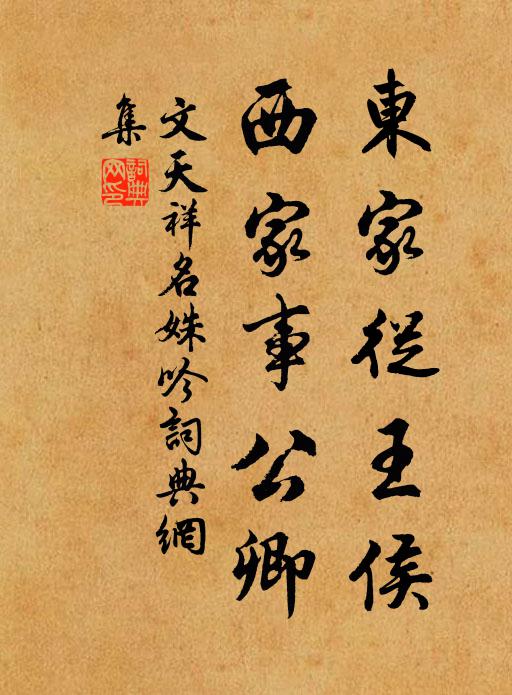 東家從王侯
西家事公卿
文天祥名姝吟詞典網
集
詞典網印